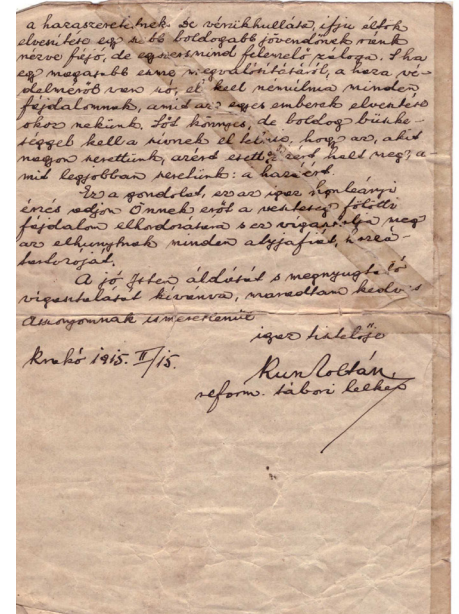 a hazaszeretetnek. De vérük hullása, ifju éltök
elvesztése egy szebb boldogabb jövendőnek reánk
nézve fájó, de egyszersmind felemelő záloga. S ha
egy magasabb eszme megvalósításáról, a haza vé-
delméről van szó, el kell némulnia minden
fájdalomnak, amit az egyes emberek elvesztése
okoz nekünk. Sőt könnyes, de boldog büszke-
séggel kell a szivnek eltelnie, hogy az, akit
nagyon szerettünk, azért esett, azért halt meg, a-
mit legjobban szeretünk: a hazáért.
Ez a gondolat, ez az igaz honleányi
érzés adjon Önnek erőt a veszteség fölötti
fájdalom elhordozására s ez vigasztalja meg
az elhunytnak minden atyjafiát, hozzá-
tartozóját.
A jó Isten áldását s megnyugtató
vigasztalását kivánva, maradtam kedves
Asszonyomnak ismeretlenül
igaz tisztelője
Krakó 1915. II/15.
Kun Zoltán.
reform. tábori lelkész